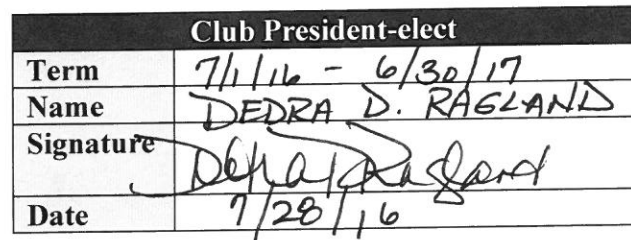 Club President-elect
Term 7/1/16 - 6/30/17
Name DEDRA D. RAGLAND
Signature Dedra D Ragland
Date 7/28/16